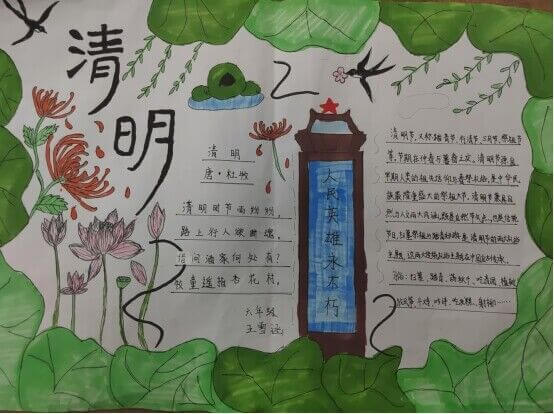 清明
清明
唐·杜牧
清明时节雨纷纷,
路上行人欲断魂。
借问酒家何处有?
牧童遥指杏花村。
六年级
王雪
人民英雄永垂不朽
清明节,又称踏青节、行清节、三月节、祭祖节
等,节期在仲春与暮春之交。清明节源自
早期人类的祖先信仰与春祭礼俗,是中华民
族最隆重盛大的祭祖大节。清明节兼具自
然与人文两大内涵,既是自然节气点,也是传统
节日,扫墓祭祖与踏青郊游是清明节的两大礼俗
主题,这两大传统礼俗主题在中国自古传承。
习俗:扫墓、踏青、荡秋千、吃青团、植树
放风筝、射柳……